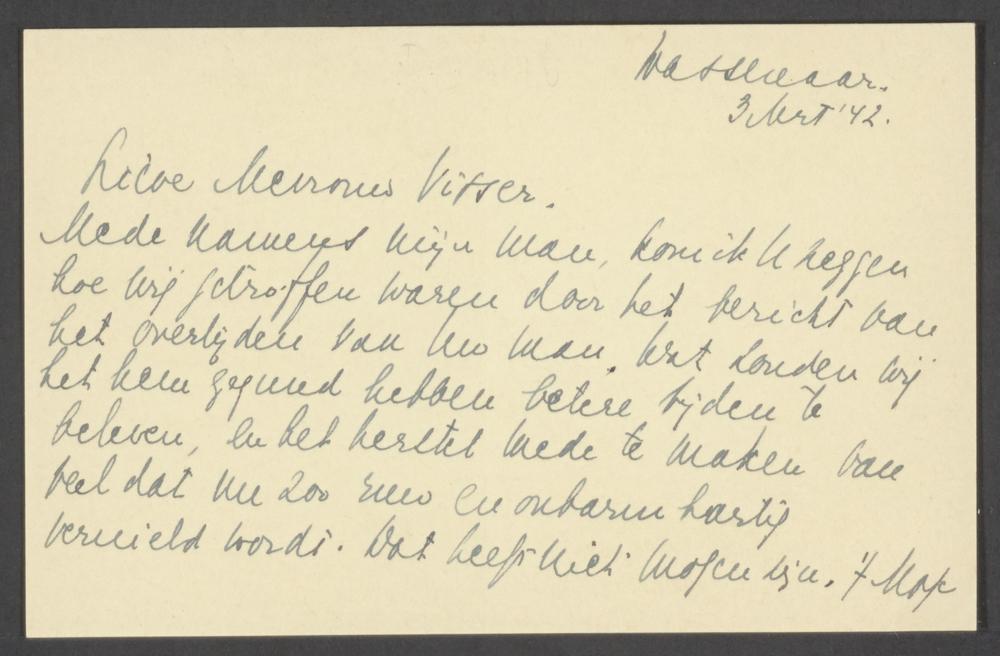 Wassenaar.
3 Mrt '42.
Lieve Mevrouw Visser.
Mede namens mijn man, kom ik U zeggen
hoe wij getroffen waren door het bericht van
het overlijden van Uw man. Wat zouden wij
het hem gegund hebben betere tijden te
beleven, en het herstel mede te maken van
veel dat nu zoo ruw en onbarmhartig
vernield wordt. Dat heeft niet mogen zijn. 't Mag